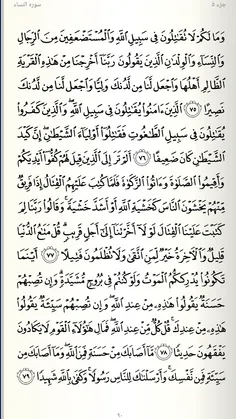 جزء ٥ سورة النساء
وَمَا لَكُمْ لَا تُقَٰتِلُونَ فِي سَبِيلِ ٱللَّهِ وَٱلْمُسْتَضْعَفِينَ مِنَ ٱلرِّجَالِ
وَٱلنِّسَآءِ وَٱلْوِلْدَٰنِ ٱلَّذِينَ يَقُولُونَ رَبَّنَآ أَخْرِجْنَا مِنْ هَٰذِهِ ٱلْقَرْيَةِ
ٱلظَّالِمِ أَهْلُهَا وَٱجْعَل لَّنَا مِن لَّدُنكَ وَلِيًّا وَٱجْعَل لَّنَا مِن لَّدُنكَ
نَصِيرًا ٧٥ ٱلَّذِينَ ءَامَنُوا۟ يُقَٰتِلُونَ فِي سَبِيلِ ٱللَّهِ وَٱلَّذِينَ كَفَرُوا۟
يُقَٰتِلُونَ فِي سَبِيلِ ٱلطَّٰغُوتِ فَقَٰتِلُوٓا۟ أَوْلِيَآءَ ٱلشَّيْطَٰنِ إِنَّ كَيْدَ
ٱلشَّيْطَٰنِ كَانَ ضَعِيفًا ٧٦ أَلَمْ تَرَ إِلَى ٱلَّذِينَ قِيلَ لَهُمْ كُفُّوٓا۟ أَيْدِيَكُمْ
وَأَقِيمُوا۟ ٱلصَّلَوٰةَ وَءَاتُوا۟ ٱلزَّكَوٰةَ فَلَمَّا كُتِبَ عَلَيْهِمُ ٱلْقِتَالُ إِذَا فَرِيقٌ
مِّنْهُمْ يَخْشَوْنَ ٱلنَّاسَ كَخَشْيَةِ ٱللَّهِ أَوْ أَشَدَّ خَشْيَةً وَقَالُوا۟ رَبَّنَا لِمَ
كَتَبْتَ عَلَيْنَا ٱلْقِتَالَ لَوْلَآ أَخَّرْتَنَآ إِلَىٰٓ أَجَلٍ قَرِيبٍ قُلْ مَتَٰعُ ٱلدُّنْيَا
قَلِيلٌ وَٱلْءَاخِرَةُ خَيْرٌ لِّمَنِ ٱتَّقَىٰ وَلَا تُظْلَمُونَ فَتِيلًا ٧٧ أَيْنَمَا
تَكُونُوا۟ يُدْرِككُّمُ ٱلْمَوْتُ وَلَوْ كُنتُمْ فِي بُرُوجٍ مُّشَيَّدَةٍ وَإِن تُصِبْهُمْ
حَسَنَةٌ يَقُولُوا۟ هَٰذِهِ مِنْ عِندِ ٱللَّهِ وَإِن تُصِبْهُمْ سَيِّئَةٌ يَقُولُوا۟
هَٰذِهِ مِنْ عِندِكَ قُلْ كُلٌّ مِّنْ عِندِ ٱللَّهِ فَمَالِ هَٰٓؤُلَآءِ ٱلْقَوْمِ لَا يَكَادُونَ
يَفْقَهُونَ حَدِيثًا ٧٨ مَّآ أَصَابَكَ مِنْ حَسَنَةٍ فَمِنَ ٱللَّهِ وَمَآ أَصَابَكَ مِن
سَيِّئَةٍ فَمِن نَّفْسِكَ وَأَرْسَلْنَٰكَ لِلنَّاسِ رَسُولًا وَكَفَىٰ بِٱللَّهِ شَهِيدًا ٧٩
٩٠